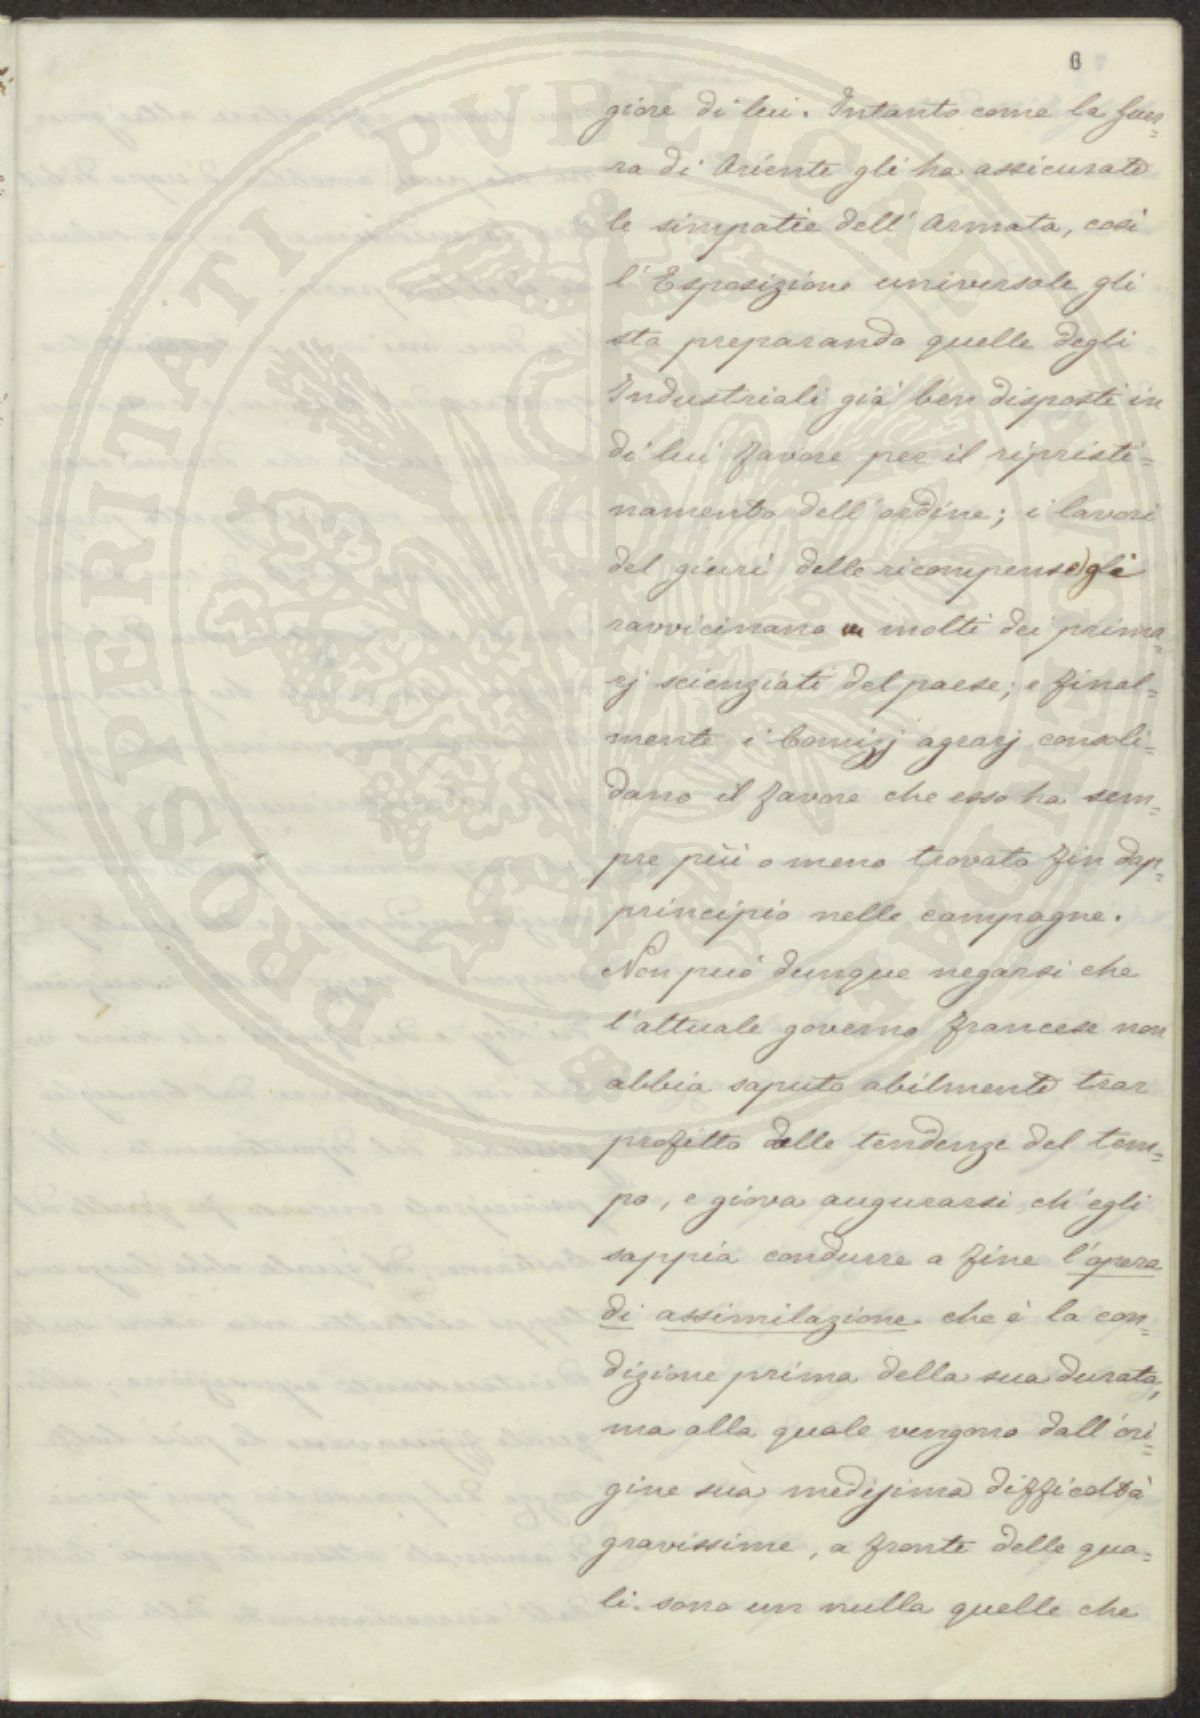 6
giore di lui. Intanto come la guer=
ra di Oriente gli ha assicurate
le simpatie dell' Armata, così
l' Esposizione universale gli
sta preparando quelle degli
Industriali già ben disposti in
di lui favore per il ripristi=
namento dell' ordine; i lavori
del giurì delle ricompense) gli
ravvicinano molti dei prima=
rj scienziati del paese; e final=
mente i Comizj agrarj consoli=
dano il favore che esso ha sem=
pre più o meno trovato fin dap=
principio nelle campagne.
Non può dunque negarsi che
l'attuale governo francese non
abbia saputo abilmente trar
profitto delle tendenze del tem=
po, e giova augurarsi ch' egli
sappia condurre a fine l'opera
di assimilazione che è la con=
dizione prima della sua durata,
ma alla quale vengono dall' ori=
gine sua medesima difficoltà
gravissime, a fronte delle qua=
li sono un nulla quelle che
PROSPERITATI PVBLICAE AVGENDAE